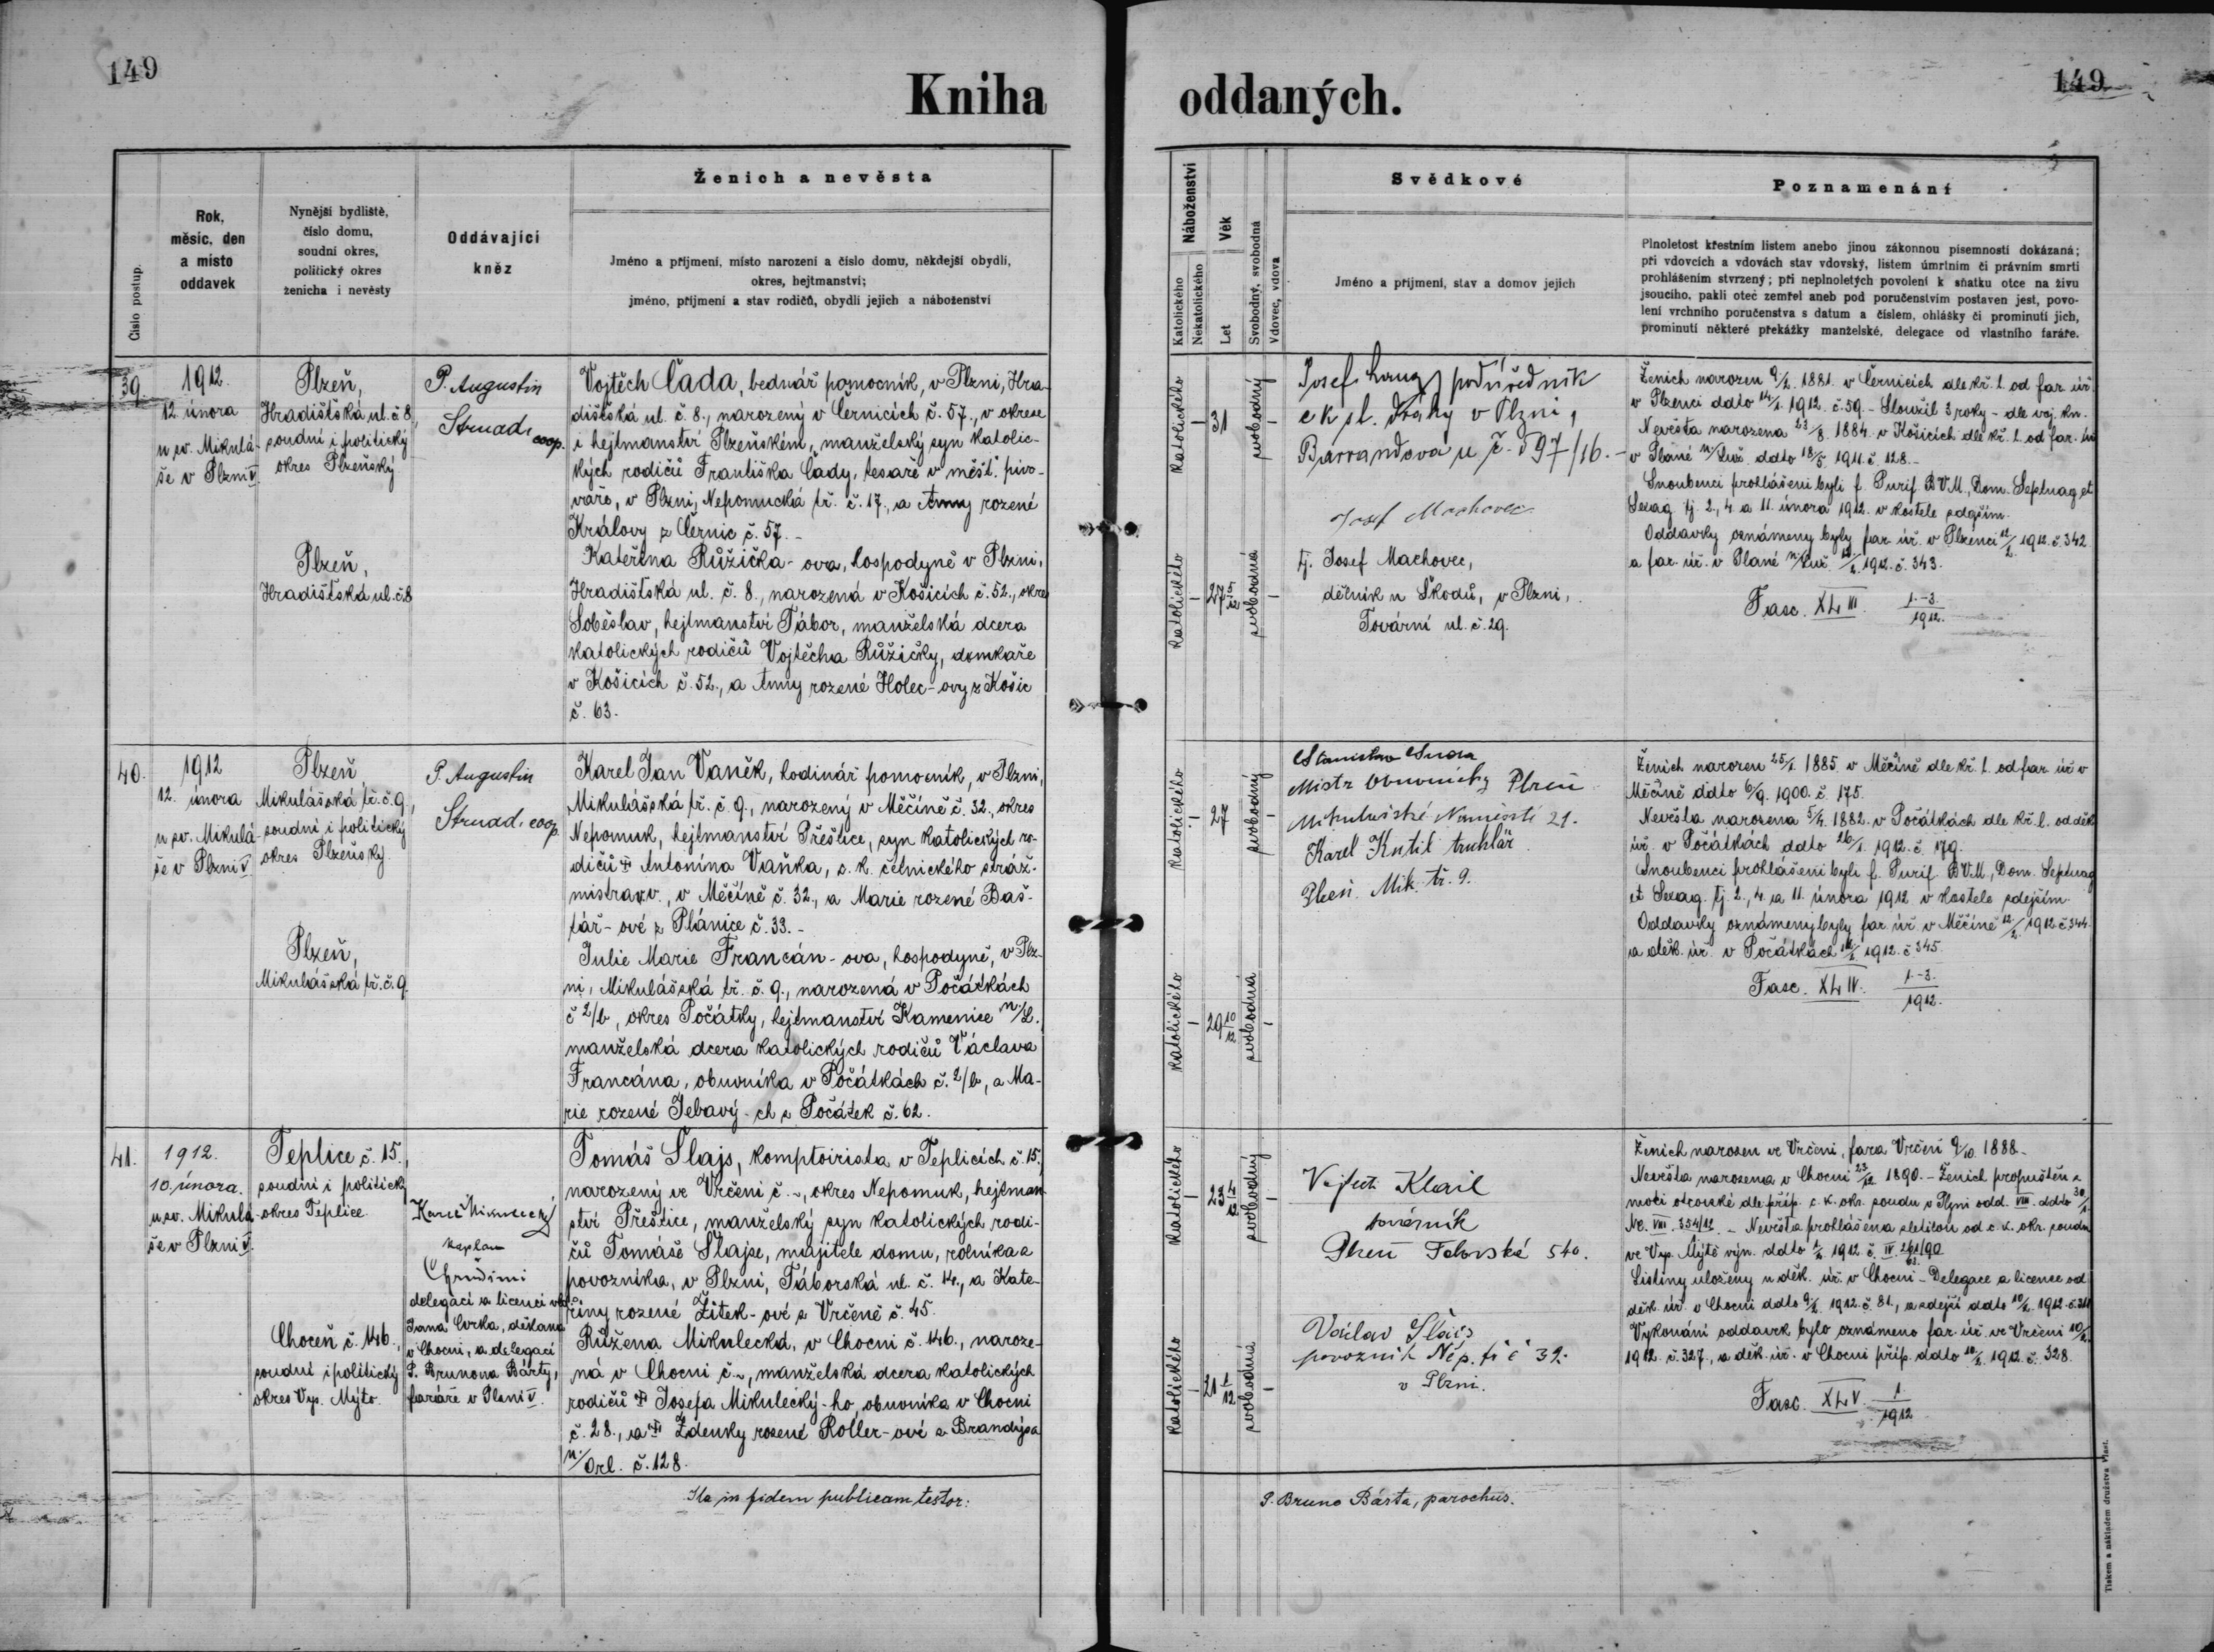 149
Kniha oddaných.
149
Číslo postup.
Rok,
měsíc, den
a místo
oddavek
Nynější bydliště,
číslo domu,
soudní okres,
politický okres
ženicha i nevěsty
Oddávající
kněz
Ženich a nevěsta
Jméno a příjmení, místo narození a číslo domu, někdejší obydlí,
okres, hejtmanství;
jméno, příjmení a stav rodičů, obydlí jejich a náboženství
Náboženství
Katolického
Nekatolického
Věk
Let
Svobodný, svobodná
Vdovec, vdova
Svědkové
Jméno a příjmení, stav a domov jejich
Poznamenání
Plnoletost křestním listem anebo jinou zákonnou písemností dokázaná;
při vdovcích a vdovách stav vdovský, listem úmrtním či právním smrti
prohlášením stvrzený; při neplnoletých povolení k sňatku otce na živu
jsoucího, pakli otec zemřel aneb pod poručenstvím postaven jest, povo-
lení vrchního poručenstva s datum a číslem, ohlášky či prominutí jich,
prominutí některé překážky manželské, delegace od vlastního faráře.
39.
1912.
12. února
u sv. Mikulá-
še v Plzni V.
Plzeň,
Hradišťská ul. č. 8,
soudní i politický
okres Plzeňský
Plzeň,
Hradišťská ul. č. 8
P. Augustin
Strnad, coop.
Vojtěch Čada, bednář pomocník, v Plzni, Hra-
dišťská ul. č. 8., narozený v Černicích č. 57., v okrese
i hejtmanství Plzeňském, manželský syn katolic-
kých rodičů Františka Čady, tesaře v měšť. pivo-
váře, v Plzni, Nepomucká tř. č. 17., a Anny rozené
Královy z Černic č. 57. -
Kateřina Růžička-ova, hospodyně v Plzni,
Hradišťská ul. č. 8., narozená v Košicích č. 52., okres
Soběslav, hejtmanství Tábor, manželská dcera
katolických rodičů Vojtěcha Růžičky, domkaře
v Košicích č. 52., a Anny rozené Holec-ovy z Košic
č. 63.
katolického
31
svobodný
katolického
27 5/12
svobodná
Josef podúředník
c k st. dráhy v Plzni,
Barrandova u č. 97/16. -
Josef Machovec
tj. Josef Machovec,
dělník u Škodů, v Plzni,
Tovární ul. č. 29.
Ženich narozen 9/2. 1881. v Černicích dle kř. l. od far. úř.
v Plzenci ddto 14/1. 1912. č. 59. - Sloužil 3 roky - dle voj. kn.
Nevěsta narozena 23/8. 1884. v Košicích dle kř. l. od far. úř.
v Plané n/Luž. ddto 18/5. 1911. č. 128. -
Snoubenci prohlášeni byli f. Purif. B.V.M., Dom. Septuag. et
Sexag. tj. 2., 4. a 11. února 1912. v kostele zdejším.
Oddavky oznámeny byly far. úř. v Plzenci 12/2. 1912. č. 342
a far. úř. v Plané n/Luž. 12/2. 1912. č. 343.
Fasc. XLIII. 1.-3./1912.
40.
1912
12. února
u sv. Mikulá-
še v Plzni V.
Plzeň
Mikulášská tř. č. 9.,
soudní i politický
okres Plzeňský.
Plzeň,
Mikulášská tř. č. 9.
P. Augustin
Strnad, coop.
Karel Jan Vaněk, hodinář pomocník, v Plzni,
Mikulášská tř. č. 9., narozený v Měčíně č. 32., okres
Nepomuk, hejtmanství Přeštice, syn katolických ro-
dičů † Antonína Vaňka, c. k. četnického stráž-
mistra v v., v Měčíně č. 32., a Marie rozené Baš-
tář-ové z Plánice č. 33. -
Julie Marie Francán-ova, hospodyně, v Plz-
ni, Mikulášská tř. č. 9., narozená v Počátkách
č 2/b, okres Počátky, hejtmanství Kamenice n/L.
manželská dcera katolických rodičů Václava
Francána, obuvníka v Počátkách č. 2/b, a Ma-
rie rozené Jebavý-ch z Počátek č. 62.
katolického
27
svobodný
katolického
29 10/12
svobodná
Stanislav
Mistr Obuvnický Plzeň
Mikulášské Náměstí 21.
Karel Kutil truhlář
Plzeň. Mik. tř. 9.
Ženich narozen 25/1. 1885. v Měčíně dle kř. l. od far. úř. v
Měčíně ddto 6/9. 1900. č. 175.
Nevěsta narozena 5/4. 1882. v Počátkách dle kř. l. od děk.
úř. v Počátkách ddto 26/1. 1912. č. 179.
Snoubenci prohlášeni byli f. Purif. B.V.M., Dom. Septuag
et Sexag. tj. 2., 4. a 11. února 1912 v kostele zdejším.
Oddavky oznámeny byly far. úř. v Měčíně 12/2. 1912. č. 344.
a děk. úř. v Počátkách 12/2. 1912. č. 345.
Fasc. XLIV. 1.-3./1912.
41.
1912.
10. února.
u sv. Mikulá-
še v Plzni V.
Teplice č. 15.,
soudní i politický
okres Teplice.
Choceň č. 146.,
soudní i politický
okres Vys. Mýto.
Karel Mikulecký
kaplan
Chrudimi
delegací a licencí
Jana Cvrka, děkana
v Chocni, a delegací
P. Brunona Bárty,
faráře v Plzni V.
Tomáš Šlajs, komptoirista v Teplicích č. 15.,
narozený ve Vrčeni č. ~, okres Nepomuk, hejtman-
ství Přeštice, manželský syn katolických rodi-
čů Tomáše Šlajse, majitele domu, rolníka a
povozníka, v Plzni, Táborská ul. č. 14., a Kate-
řiny rozené Žitek-ové z Vrčeně č. 45.
Růžena Mikulecká, v Chocni č. 146., naroze-
ná v Chocni č. ~, manželská dcera katolických
rodičů † Josefa Mikulecký-ho, obuvníka v Chocni
č. 28., a † Zdenky rozené Roller-ové z Brandýsa
n/Orl. č. 128.
katolického
23 4/12
svobodný
katolického
21 1/12
svobodná
Vojtěch Klail
továrník
Plzeň 540.
Václav Šlais
povozník Nep. tř č 32.
v Plzni.
Ženich narozen ve Vrčeni, fara Vrčeň 9/10. 1888. -
Nevěsta narozena v Chocni 23/12. 1890. - Ženich propuštěn z
moci otcovské dle příp. c. k. okr. soudu v Plzni odd. VIII. ddto 30/1.
Nc. VIII. 354/12. - Nevěsta prohlášena zletilou od c. k. okr. soudu
ve Vys. Mýtě výn. ddto 1/2. 1912 č. IV. 261/90
Listiny uloženy u děk. úř. v Chocni - Delegace a licence od
děk. úř. v Chocni ddto 9/2. 1912. č. 81., a zdejší ddto 10/2. 1912.
Vykonání oddavek bylo oznámeno far. úř. ve Vrčeni 10/2.
1912. č. 327., a děk. úř. v Chocni příp. ddto 10/2. 1912. č. 328.
Fasc. XLV. 1/1912
Ita in fidem publicam testor:
P. Bruno Bárta, parochus.
Tiskem a nákladem družstva Vlast.